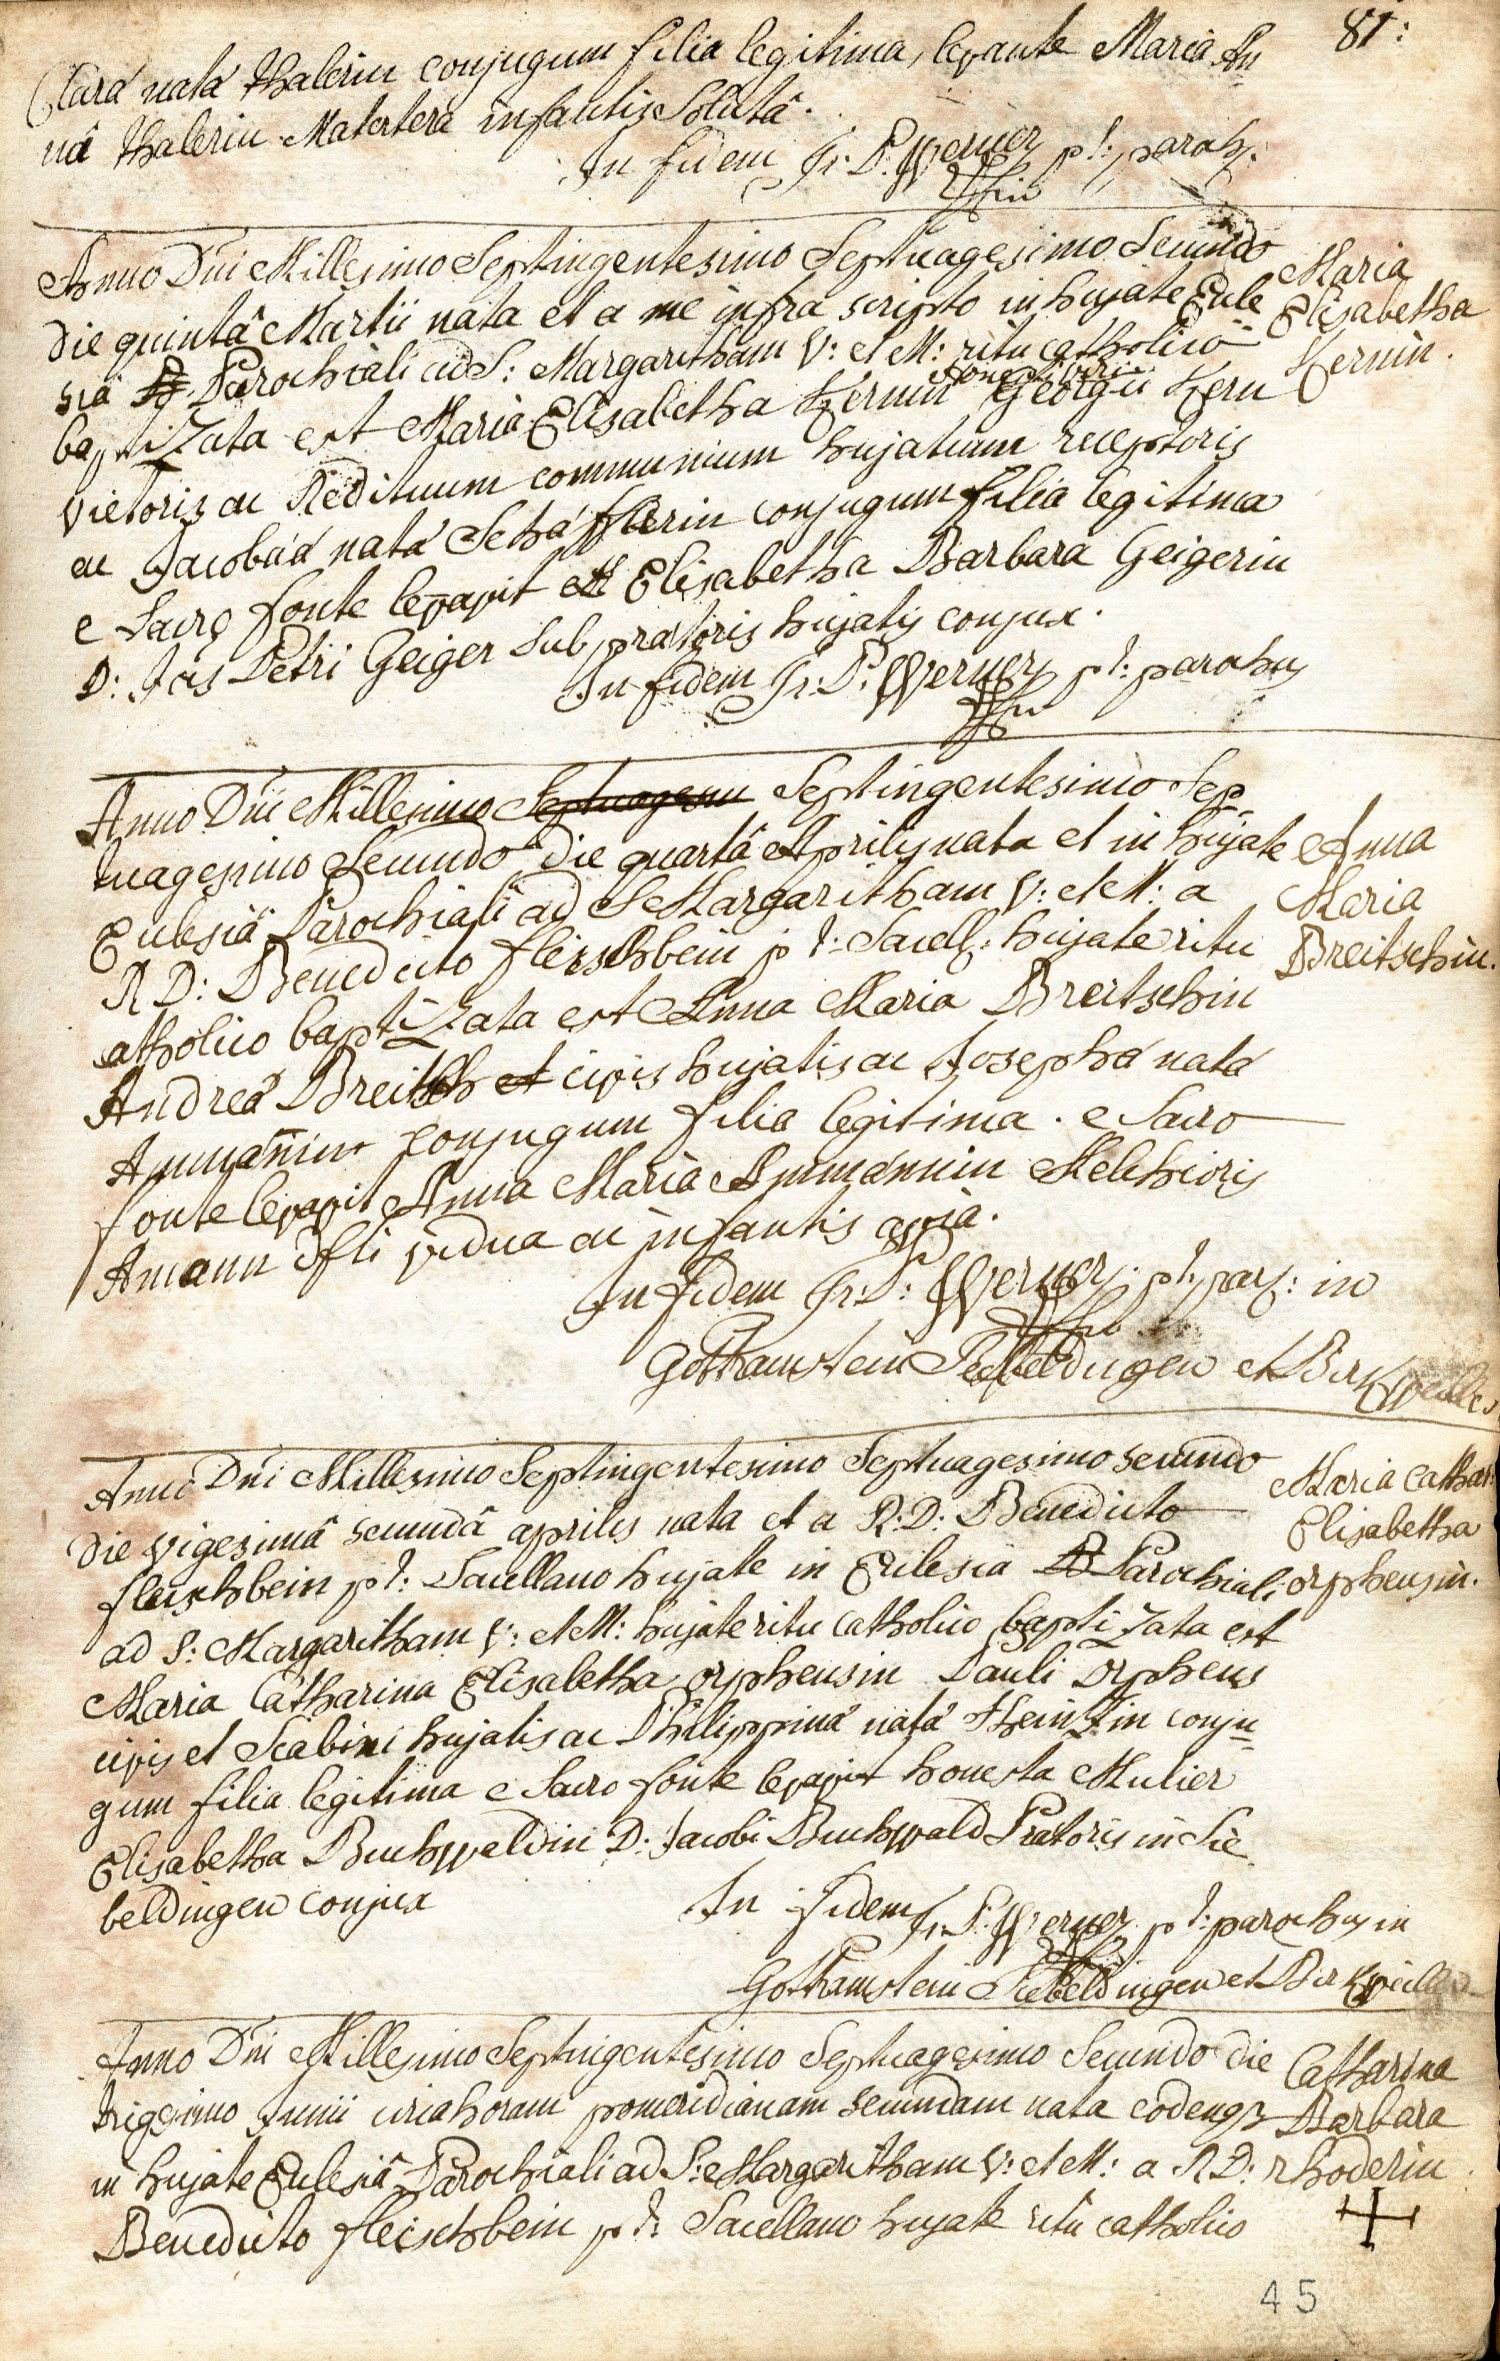 81:
Clarâ natâ Thalerin conjugum filia legitima, levante Mariâ An
nâ Thalerin Matertera infantis Solutâ.
In fidem Fr: P: Werner p:t: paroch:
Anno Dni Millesimo Septingentesimo Septuagesimo Secundo
Die quintâ Martii nata et a me infra scripto in hujate Eccle
siâ Parochiali ad S: Margaritham V: et M: ritu catholico
baptizata est Maria Elisabetha Kernin honesti viri Georgii Kern
vietoris ac Redituum communium hujatium receptoris
ac Jacobâa natâ Schäfferin conjugum filia legitima
e Sacro fonte levavit Elisabetha Barbara Geigerin
D: Jois Petri Geiger Subpraetoris hujatis conjux.
In fidem Fr: P: Werner p:t: parochus
Maria
Elisabetha
Kernin.
Anno Dni Millesimo Septuagesim Septingentesimo Sep
tuagesimo Secundo Die quartâ Aprilis nata et in hujate
Ecclesiâ Parochiali ad S Margaritham V: et M: a
R D: Benedicto fleischbein p t: Sacell: hujate ritu
catholico baptizata est Anna Maria Breitschin
Andreâ Breitsch et civis hujatis ac Josephâ natâ
Ammännin conjugum filia legitima. e Sacro
fonte levavit Anna Maria Ammännin Melchioris
Amann dfti vidua ac infantis avia.
In fidem Fr: P: Werner p:t: par: in
Gothramstein Siebeldingen et Birkweiller
Anna
Maria
Breitschin.
Anno Dni Millesimo Septingentesimo Septuagesimo secundo
Die vigesimâ secundâ aprilis nata et a R: D: Benedicto
fleischbein p t: Sacellano hujate in Ecclesiâ Parochiali
ad S: Margaritham V: et M: hujate ritu catholico baptizata est
Maria Catharina Elisabetha orpheusin Pauli Orpheus
civis et Scabini hujatis ac Philippinâ natâ Heintzin conju
gum filia legitima e Sacro fonte levavit honesta Mulier
Elisabetha Buchwaldin D: Jacobi Buchwald Praetoris in Sie
beldingen conjux
In fidem Fr: P: Werner p t: parochus in
Gothramstein Siebeldingen et Birkweiller
Maria Cathar:
Elisabetha
orpheusin.
Anno Dni Millesimo Septingentesimo Septuagesimo Secundo die
trigesimo Junii circa horam pomeridianam secundam nata eodemq3
in hujate Ecclesiâ Parochiali ad S: Margaritham V: et M: a R D:
Benedicto fleischbein p t: Sacellano hujate ritu catholico
Catharina
Barbara
rhoderin
45